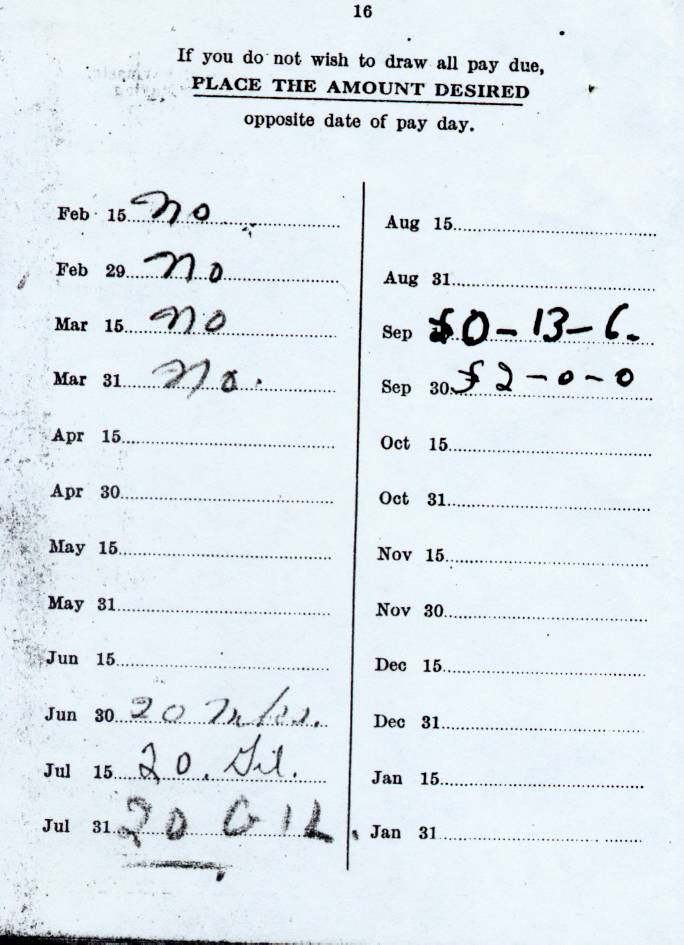 16
If you do not wish to draw all pay due,
PLACE THE AMOUNT DESIRED
opposite date of pay day.
Feb 15 no
Feb 29 no
Mar 15 no
Mar 31 no.
Apr 15
Apr 30
May 15
May 31
Jun 15
Jun 30 20
Jul 15 20. Gil.
Jul 31 20 GIL
Aug 15
Aug 31
Sep £0-13-6.
Sep 30 £2-0-0
Oct 15
Oct 31
Nov 15
Nov 30
Dec 15
Dec 31
Jan 15
Jan 31